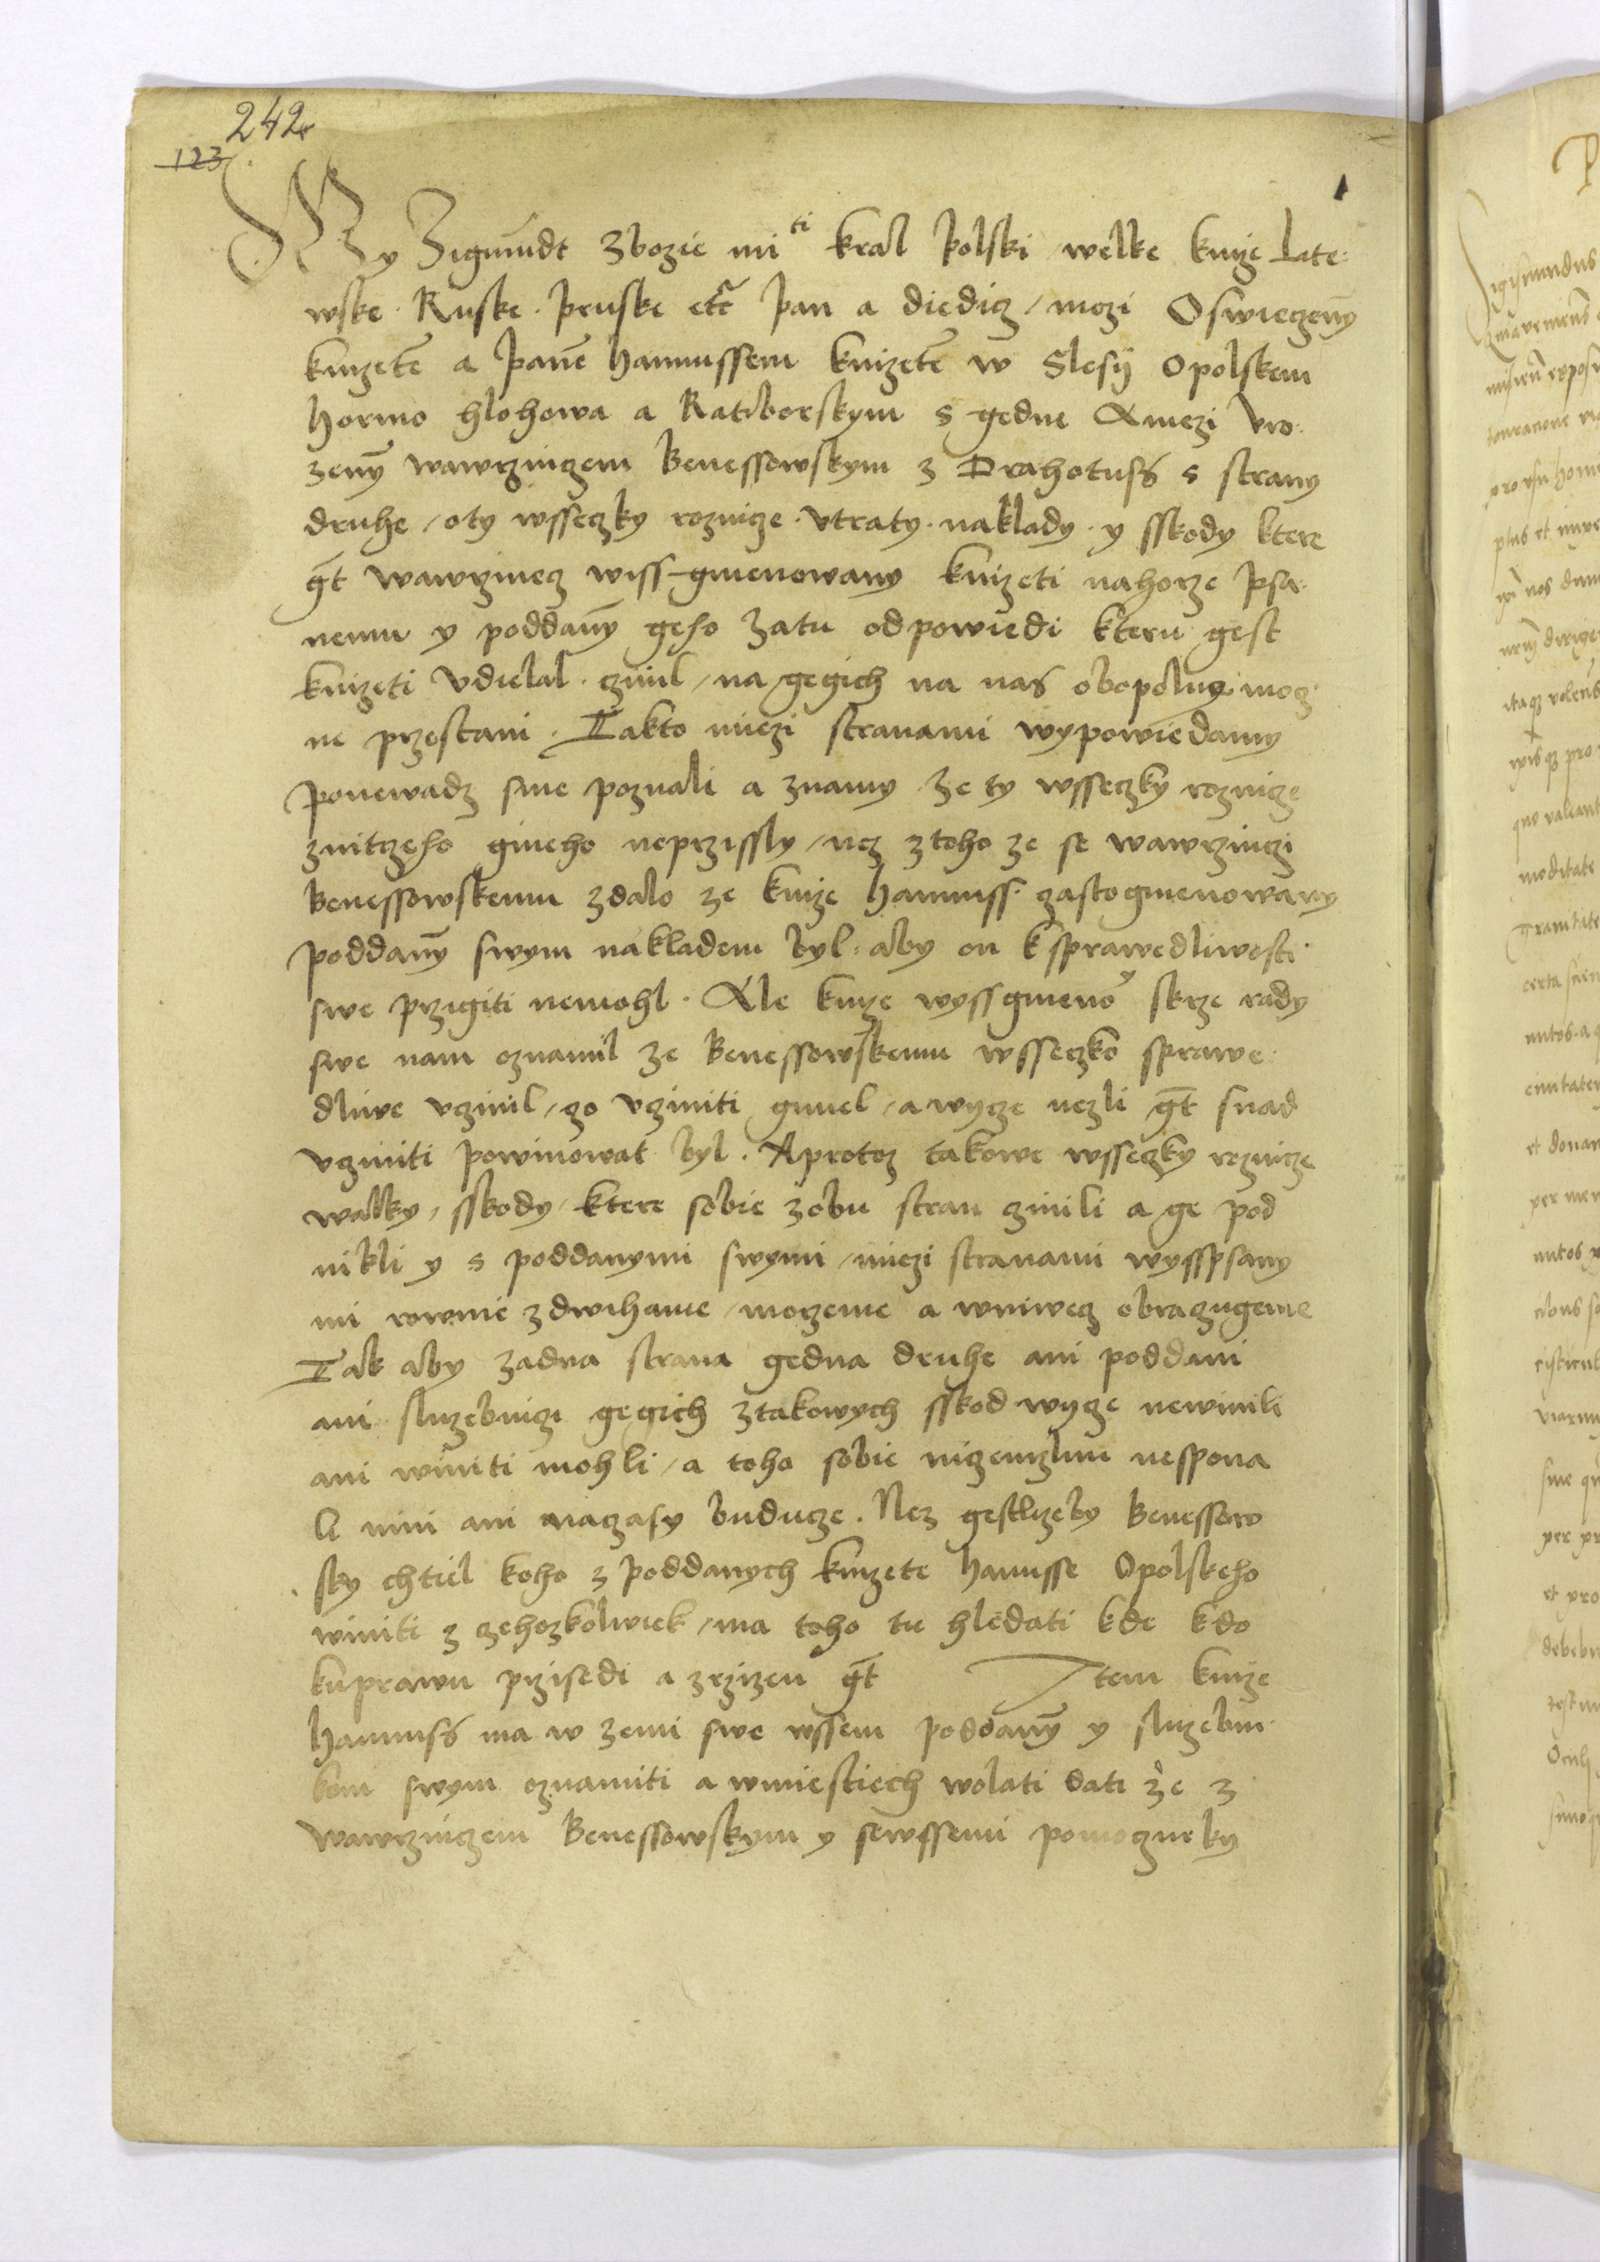 242
123
My Zigmundt zbozie mi ti kral polski welke knize Lite
wske. Ruske. pruske etc pan a diedicz / mezi Oswieczeny
knizete a pane hannussem knizete w Slesij Opolskem
horno hlohowa a Ratiborskym s gedne A mezi vro
zeny wawrzinczem Benessowskym z Drahotuss s strany
druhe / oty wsseczky roznicze. vtraty. naklady. y sskody ktere
gt wawrzinecz wiss-gmenowany knizeti nahorze psa
nemu y poddany geho zatu odpowiedi kteru gest
knizeti vdielal. czinil / na gegich na nas obopolny. mocz
ne przestani. Takto miezi stranami wypowiedamy
ponewadz sme poznali a znamy ze ty wsseczky roznicze
zniczeho gineho neprzissly / nez ztoho ze se wawrzinczi
Benessowskemu zdalo ze knize hannuss. czastogmenowany
poddany swym nakladem byl. aby on k sprawedliwosti
swe przigiti nemohl. Ale knize wyssgmeno y skrze rady
swe nam oznamil ze Benessowskemu wsseczko sprawe
dliwe vczinil / go vcziniti gmiel / a wycze nezli gt snad
vcziniti powinowat byl. Aprotoz takowe wsseczky roznicze
walky / sskody / ktere sobie zobu stran czinili a ge pod
nikli y s poddanymi swymi / miezi stranami wysspsany
mi rownie zdwihame / morzeme a wniwecz obraczugeme
Tak aby zadna strana gedna druhe ani poddani
ani sluzebniczi gegich ztakowych sskod wycze newinili
ani winiti mohli / a toho sobie niczimzlim nespona
li nini ani naczasy buducze. Nez gestlizeby Benessow
sky chtiel koho z poddanych knizete hanusse Opolskeho
winiti z czehozkoliwiek / ma toho tu hledati kde kdo
kuprawu przisedi a zrzizen gt Item knize
hannuss ma w zemi swe wssem poddany y sluzebni
kom swym oznamiti a wmiestiech wolati dati ze z
wawrzinczem Benessowskym y sewssemi pomoczniky